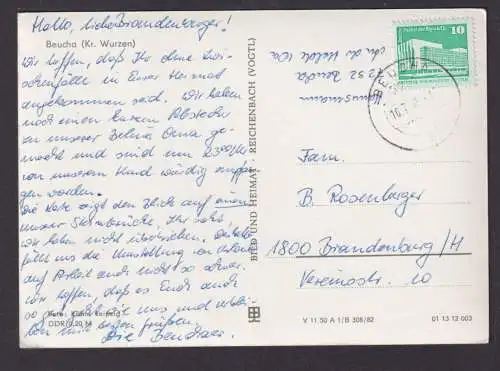 Hallo, liebe Brandenburger!
Beucha (Kr. Wurzen)
Wir hoffen, daß Ihr ohne Zwi-
schenfälle in Eurer Heimat
angekommen seid. Wir haben
noch einen kurzen Abstecher
zu unserer Oma ge-
macht und sind um 23⁰⁰ Uhr
von unserem Hund würdig empfan-
gen worden.
Die Karte zeigt den Blick auf einen
unserer Steinbrüche. Ihr seht,
wir haben nicht übertrieben.
fällt uns die Umstellung von Urlaub
auf Arbeit auch nicht so schwer.
Wir hoffen, daß es Euch auch
so geht wie uns und
mit besten Grüßen
Die
Foto:
DDR 0,20 M
BILD UND HEIMAT · REICHENBACH (VOGTL)
10
7252 Beucha
BEUCHA
Fam.
B. Rosenberger
1800 Brandenburg/H
Vereinsstr. 10
V 11 50 A 1/B 308/82
01 13 12 003